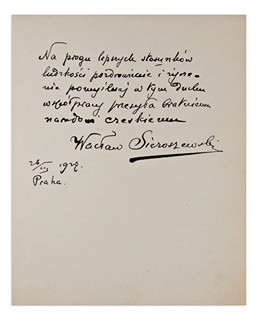 Na progu lepszych stosunków
ludzkości pozdrowienie i życze-
nia pomyślnej w tym duchu
współpracy przesyła bratniemu
narodowi czeskiemu
Wacław Sieroszewski
26/III 1927.
Praha.